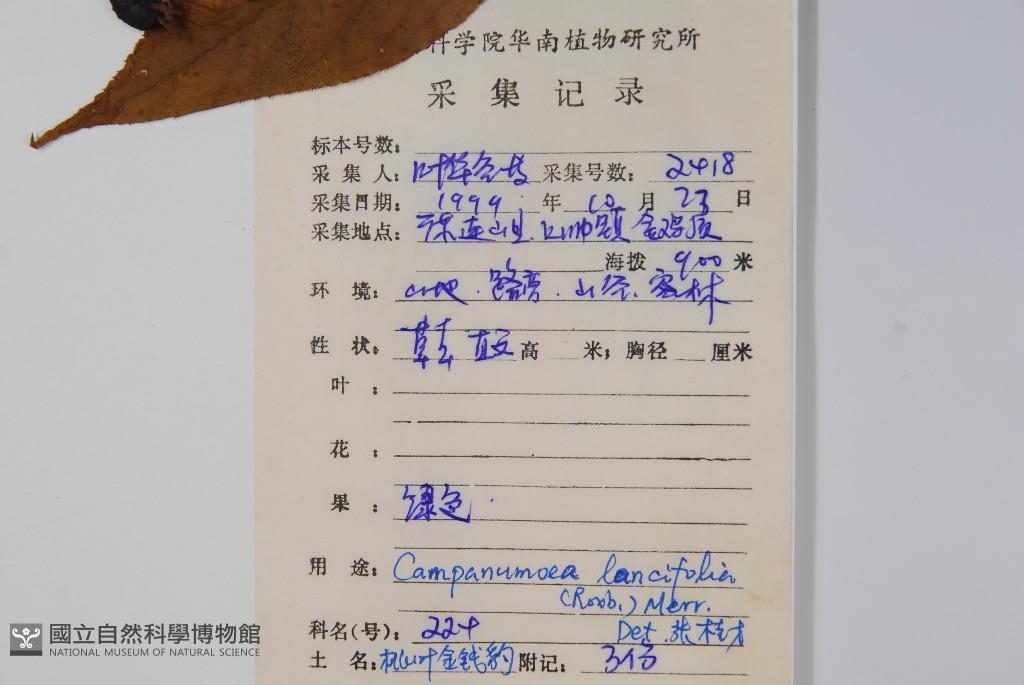 科学院华南植物研究所
采集记录
标本号数:
采集人: 叶华谷 采集号数: 2418
采集日期: 1999 年 10 月 23 日
采集地点: 连山县 上帅镇 金鸡
海拨 900 米
环境: 山地. 路旁. 山谷. 密林
性状: 草本 直立 高 米; 胸径 厘米
叶:
花:
果: 绿色.
用途: Campanumoea lancifolia
(Roxb.) Merr.
科名(号): 224 Det. 张桂才
土名: 桃叶金钱豹 附记: 3份
國立自然科學博物館
NATIONAL MUSEUM OF NATURAL SCIENCE